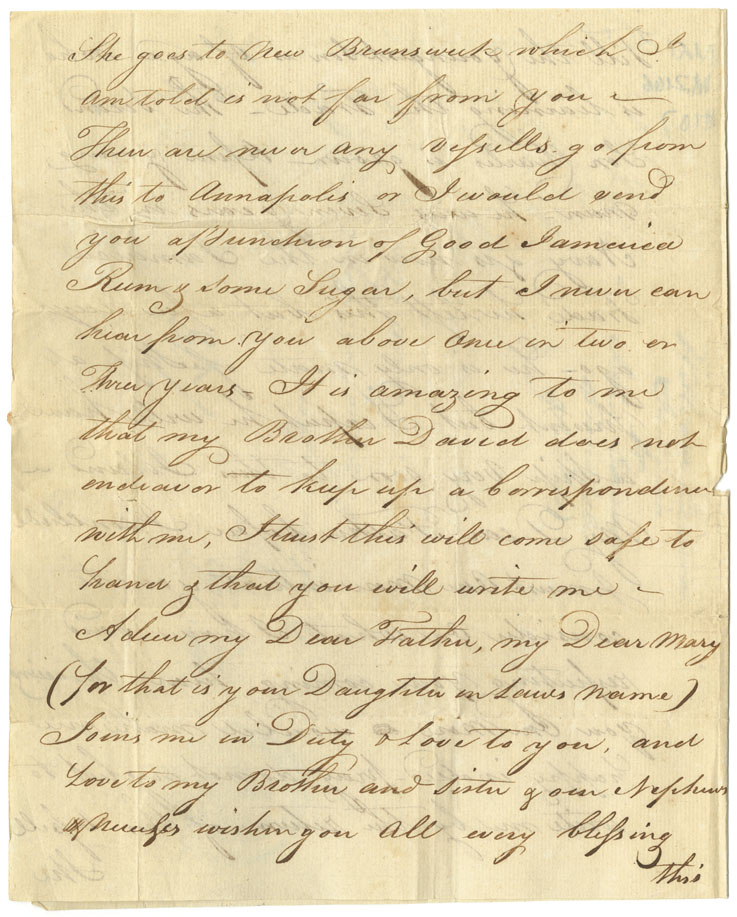 She goes to New Brunswick which I
am told is not far from you –
There are never any Vessells go from
this to Annapolis or I would send
you a Puncheon of Good Jamaica
Rum & some Sugar, but I never can
hear from you above Once in two or
Three years – It is amazing to me
that my Brother David does not
endeavor to keep up a Correspondence
with me, I trust this will come safe to
hand & that you will write me –
Adieu my Dear Father, my Dear Mary
(for that is your Daughter in Laws name)
Joins me in Duty & Love to you, and
Love to my Brother and Sister & our Nephews
& Neices wishing you all every blessing
this